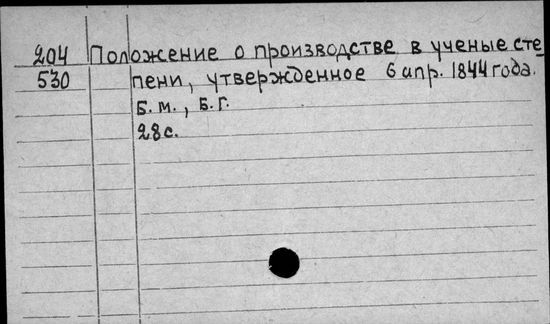 204 Положение о производстве в ученые сте-
530 пени, утвержденное 6 апр. 1844 года.
Б.м., Б.Г.
28 с.